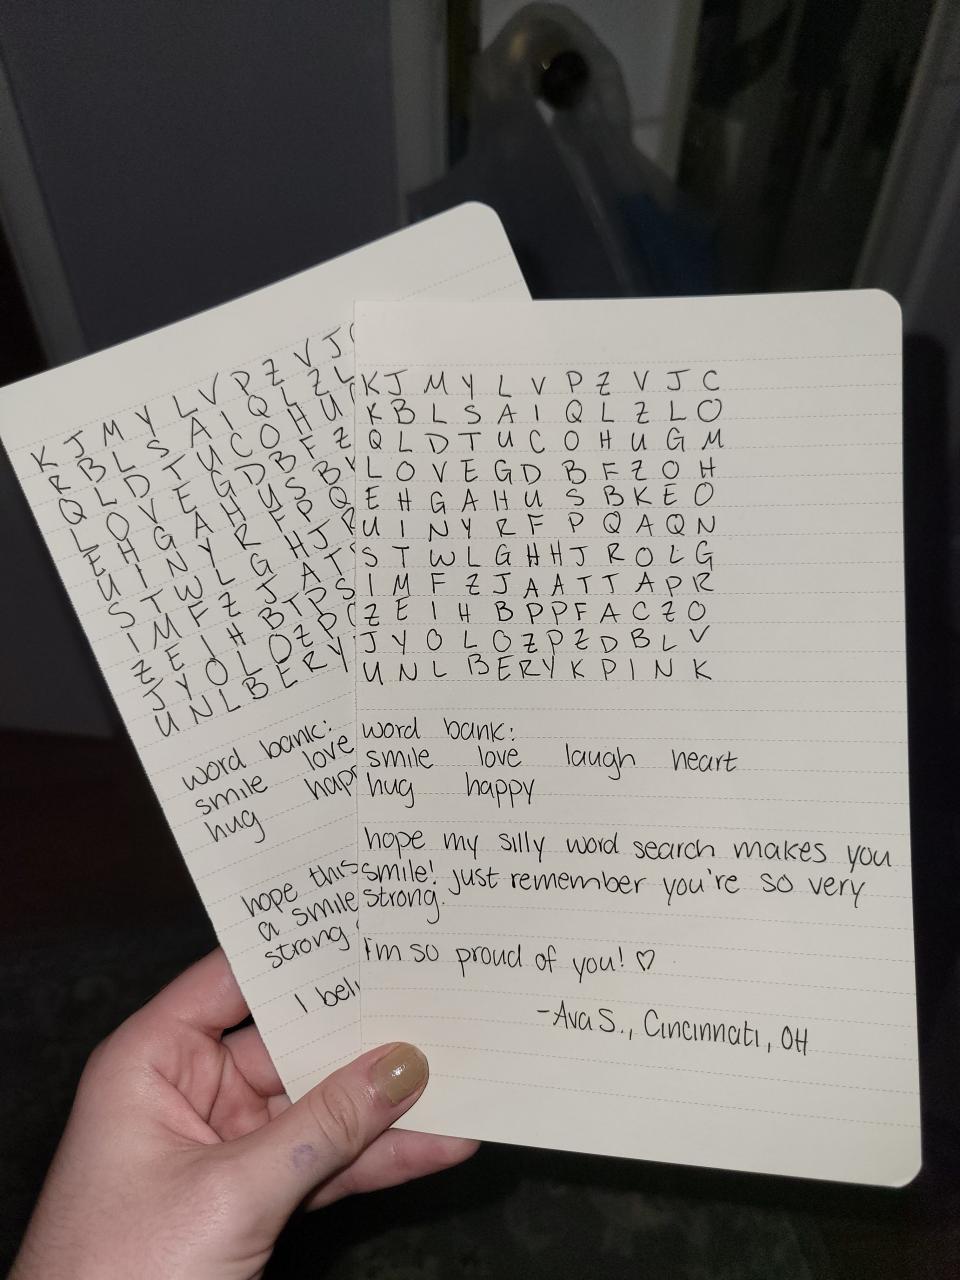 K J M Y L V P Z V J
R B L S A I Q L Z L
Q L D T U C O H U
L O V E G D B F Z
E H G A H U S B
U I N Y R F P Q
S T W L G H J R
I M F Z J A T
Z E I H B T P S
J Y O L O Z P
U N L B E R Y
word bank:
smile love
hug
hope this
a smile
strong
I
K J M Y L V P Z V J C
K B L S A I Q L Z L O
Q L D T U C O H U G M
L O V E G D B F Z O H
E H G A H U S B K E O
U I N Y R F P Q A Q N
S T W L G H H J R O L G
I M F Z J A A T T A P R
Z E I H B P P F A C Z O
J Y O L O Z P Z D B L V
U N L B E R Y K P I N K
word bank:
smile love laugh heart
hug happy
hope my silly word search makes you
smile! just remember you're so very
strong.
I'm so proud of you! ♡
-Ava S., Cincinnati, OH